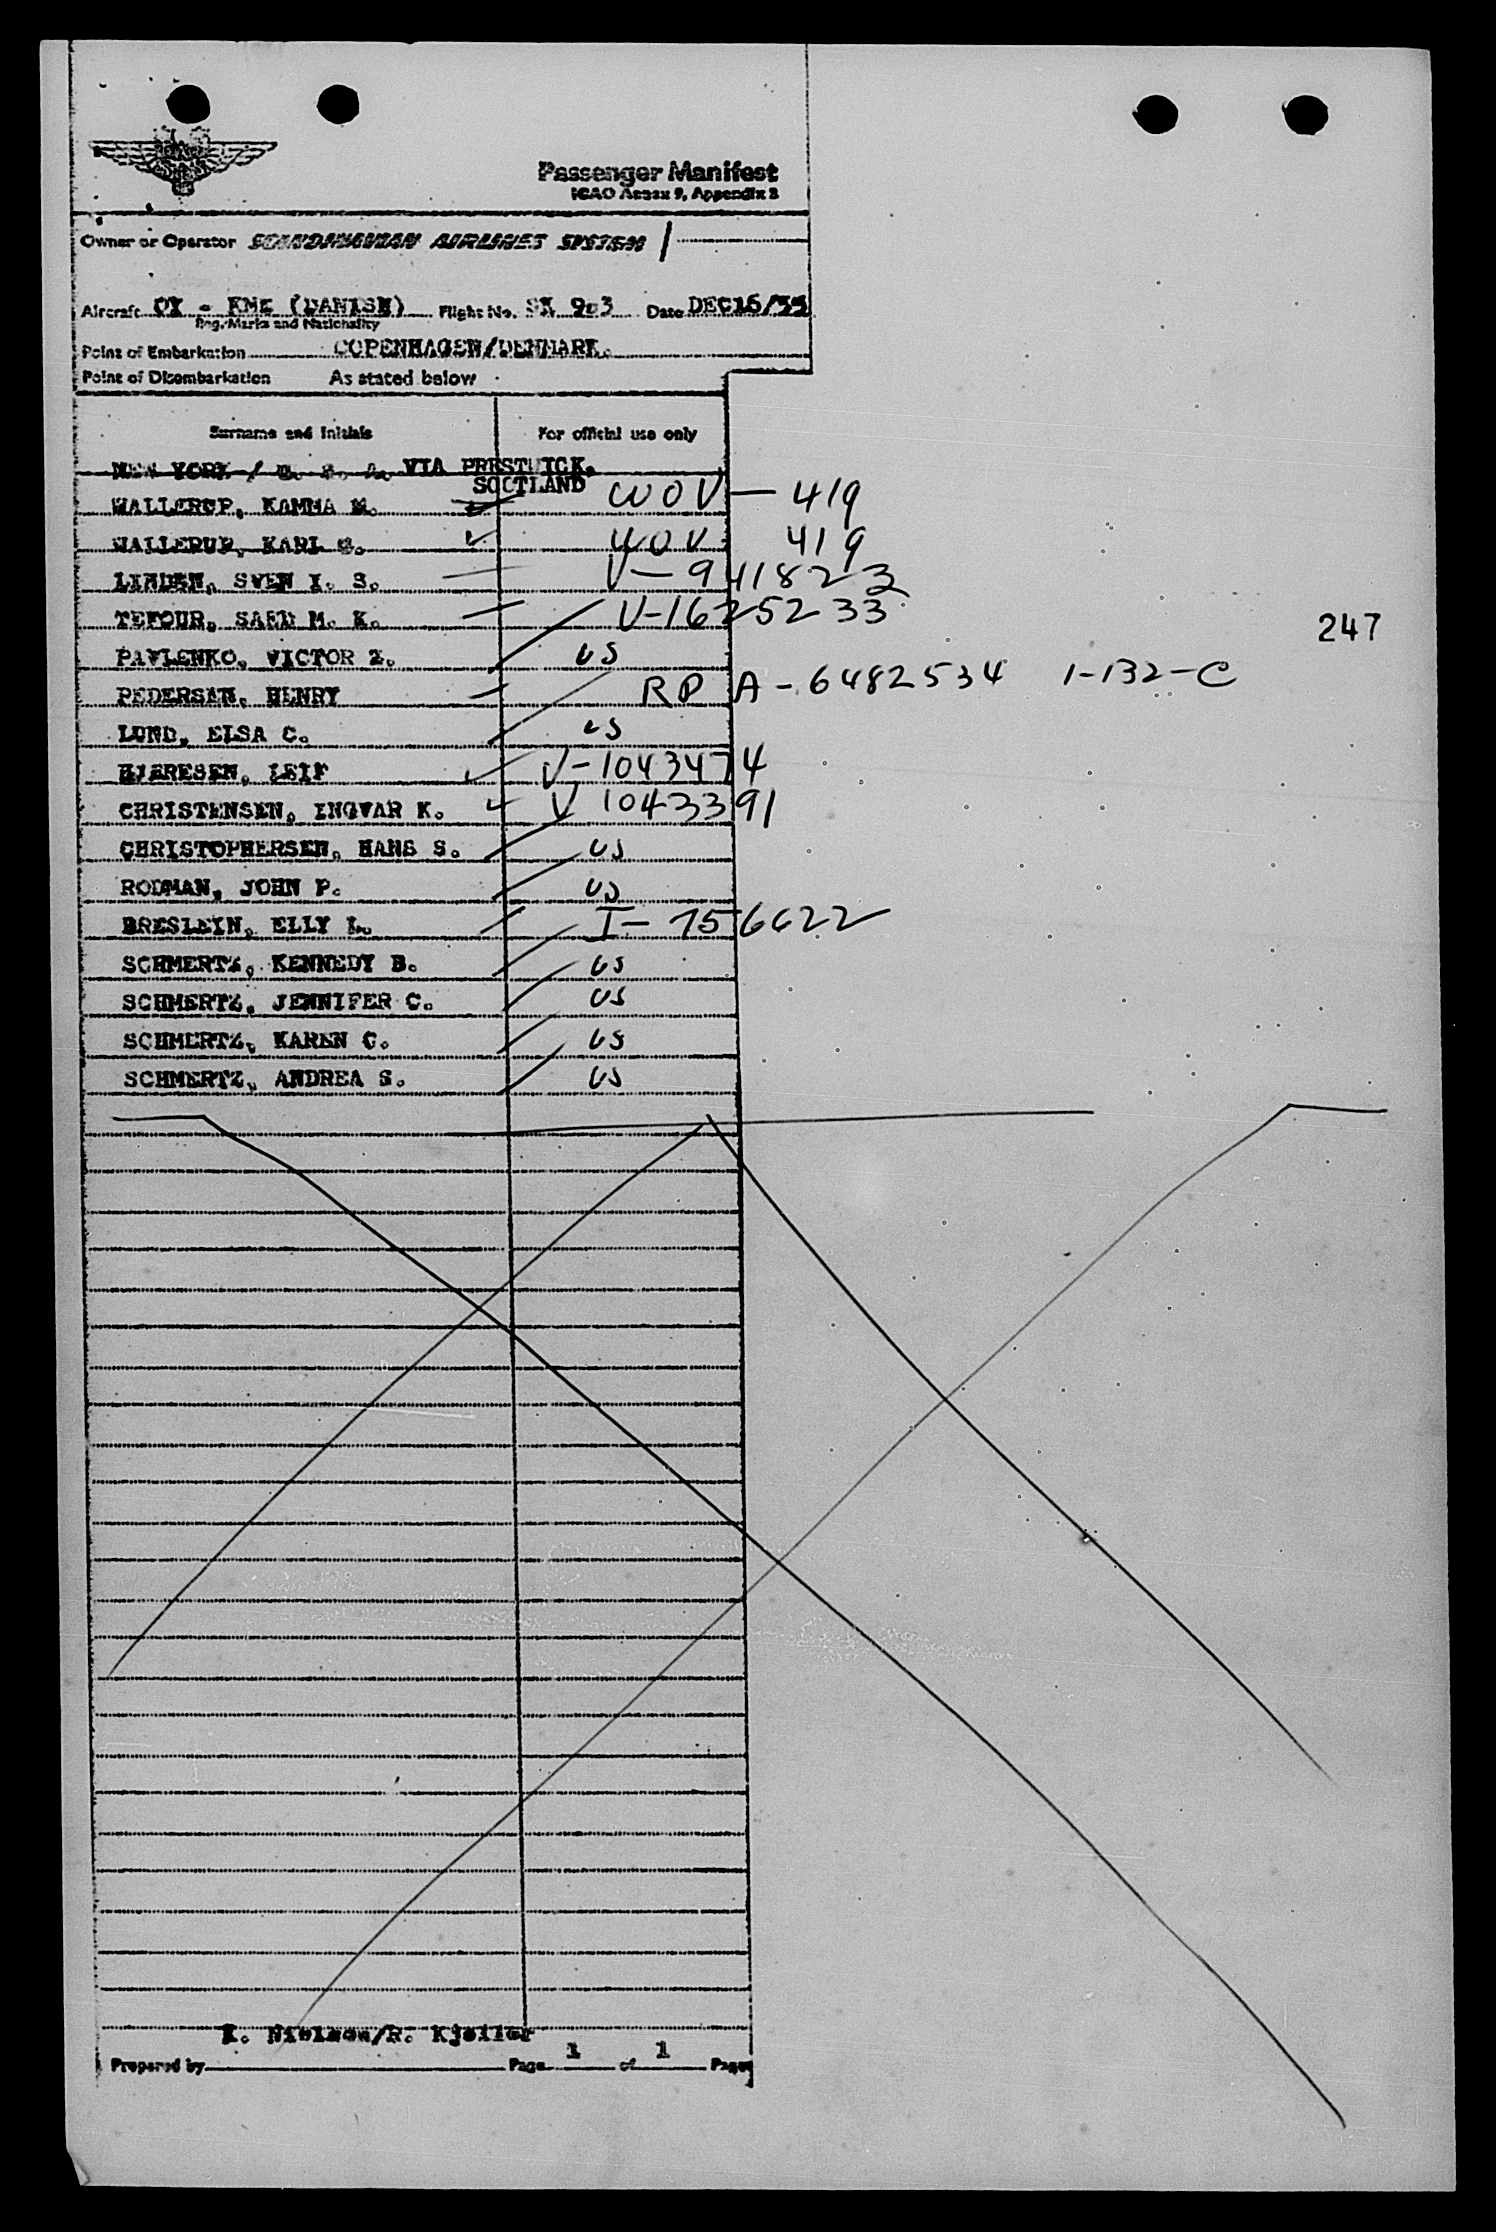 Passenger Manifest
ICAO Annex 9, Appendix 3
Owner or Operator SCANDINAVIAN AIRLINES SYSTEM
Aircraft OY - KME (DANISH) Flight No. SK 903 Date DEC16/55
Reg. Marks and Nationality
Point of Embarkation COPENHAGEN/DENMARK.
Point of Disembarkation As stated below
Surname and Initials For official use only
NEW YORK / U. S. A. VIA PRESTWICK,
SCOTLAND
WALLERUP, KAMMA M. WOV — 419
WALLERUP, KARL WOV 419
LINDEN, SVEN I. S. V — 9418223
TEFOUR, SAED M. K. V-1625233
247
PAVLENKO, VICTOR Z. US
PEDERSEN, HENRY RP A-6482534 1-132-C
LUND, ELSA C. US
HJERESEN, LEIF V-1043474
CHRISTENSEN, INGVAR K. V 1043391
CHRISTOPHERSEN, HANS S. US
RODMAN, JOHN P. US
BRESLEIN, ELLY L. I-756622
SCHMERTZ, KENNEDY B. US
SCHMERTZ, JENNIFER C. US
SCHMERTZ, KAREN C. US
SCHMERTZ, ANDREA S. US
Prepared by Page 1 of 1 Pages